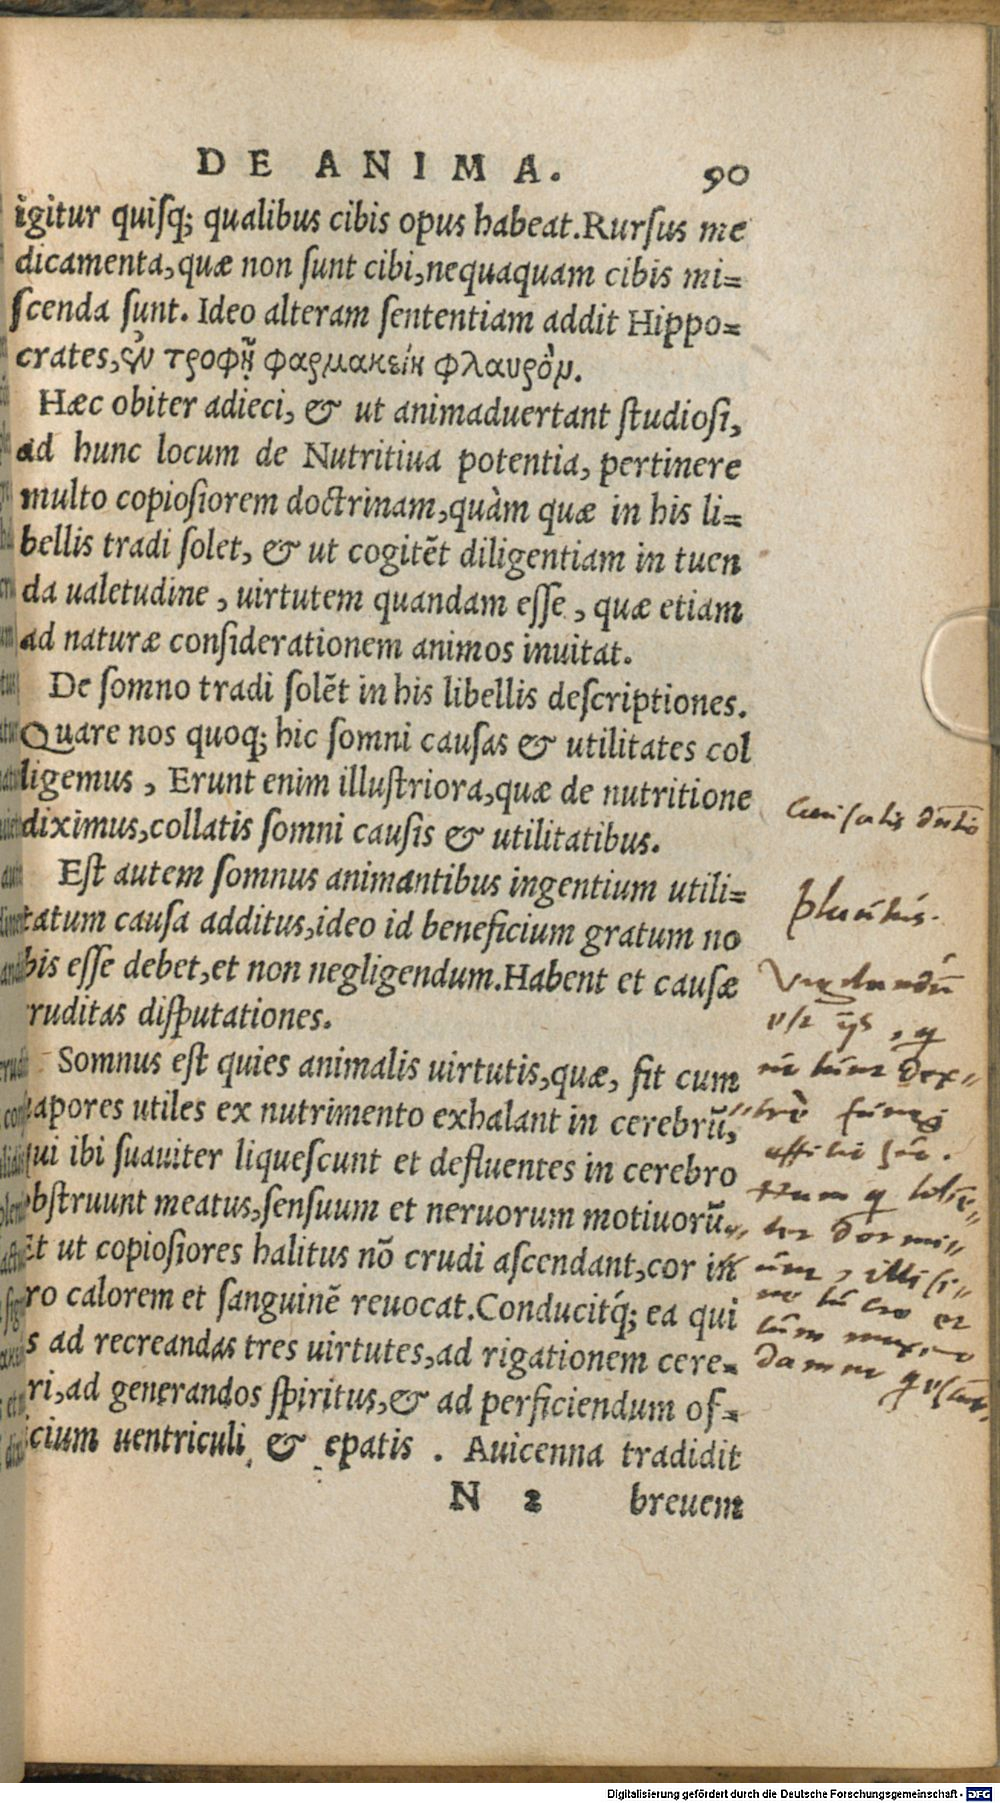 DE ANIMA. 90
igitur quisq; qualibus cibis opus habeat. Rursus me
dicamenta, quæ non sunt cibi, nequaquam cibis mi=
scenda sunt. Ideo alteram sententiam addit Hippo=
crates, ἐν τροφῇ φαρμακείη φλαυρὸν.
Hæc obiter adieci, & ut animaduertant studiosi,
ad hunc locum de Nutritiua potentia, pertinere
multo copiosiorem doctrinam, quàm quæ in his li=
bellis tradi solet, & ut cogitẽt diligentiam in tuen
da ualetudine, uirtutem quandam esse, quæ etiam
ad naturæ considerationem animos inuitat.
De somno tradi solẽt in his libellis descriptiones.
Quare nos quoq; hic somni causas & utilitates col
ligemus, Erunt enim illustriora, quæ de nutritione
diximus, collatis somni causis & utilitatibus.
Est autem somnus animantibus ingentium utili=
tatum causa additus, ideo id beneficium gratum no
bis esse debet, et non negligendum. Habent et causæ
ruditas disputationes.
Somnus est quies animalis uirtutis, quæ, fit cum
apores utiles ex nutrimento exhalant in cerebrũ,
qui ibi suauiter liquescunt et defluentes in cerebro
obstruunt meatus, sensuum et neruorum motiuorũ.
Et ut copiosiores halitus nõ crudi ascendant, cor in
ro calorem et sanguinẽ reuocat. Conducitq́; ea qui
s ad recreandas tres uirtutes, ad rigationem cere=
ri, ad generandos spiritus, & ad perficiendum of=
cium uentriculi & epatis. Auicenna tradidit
N 2 breuem
Digitalisierung gefördert durch die Deutsche Forschungsgemeinschaft - DFG